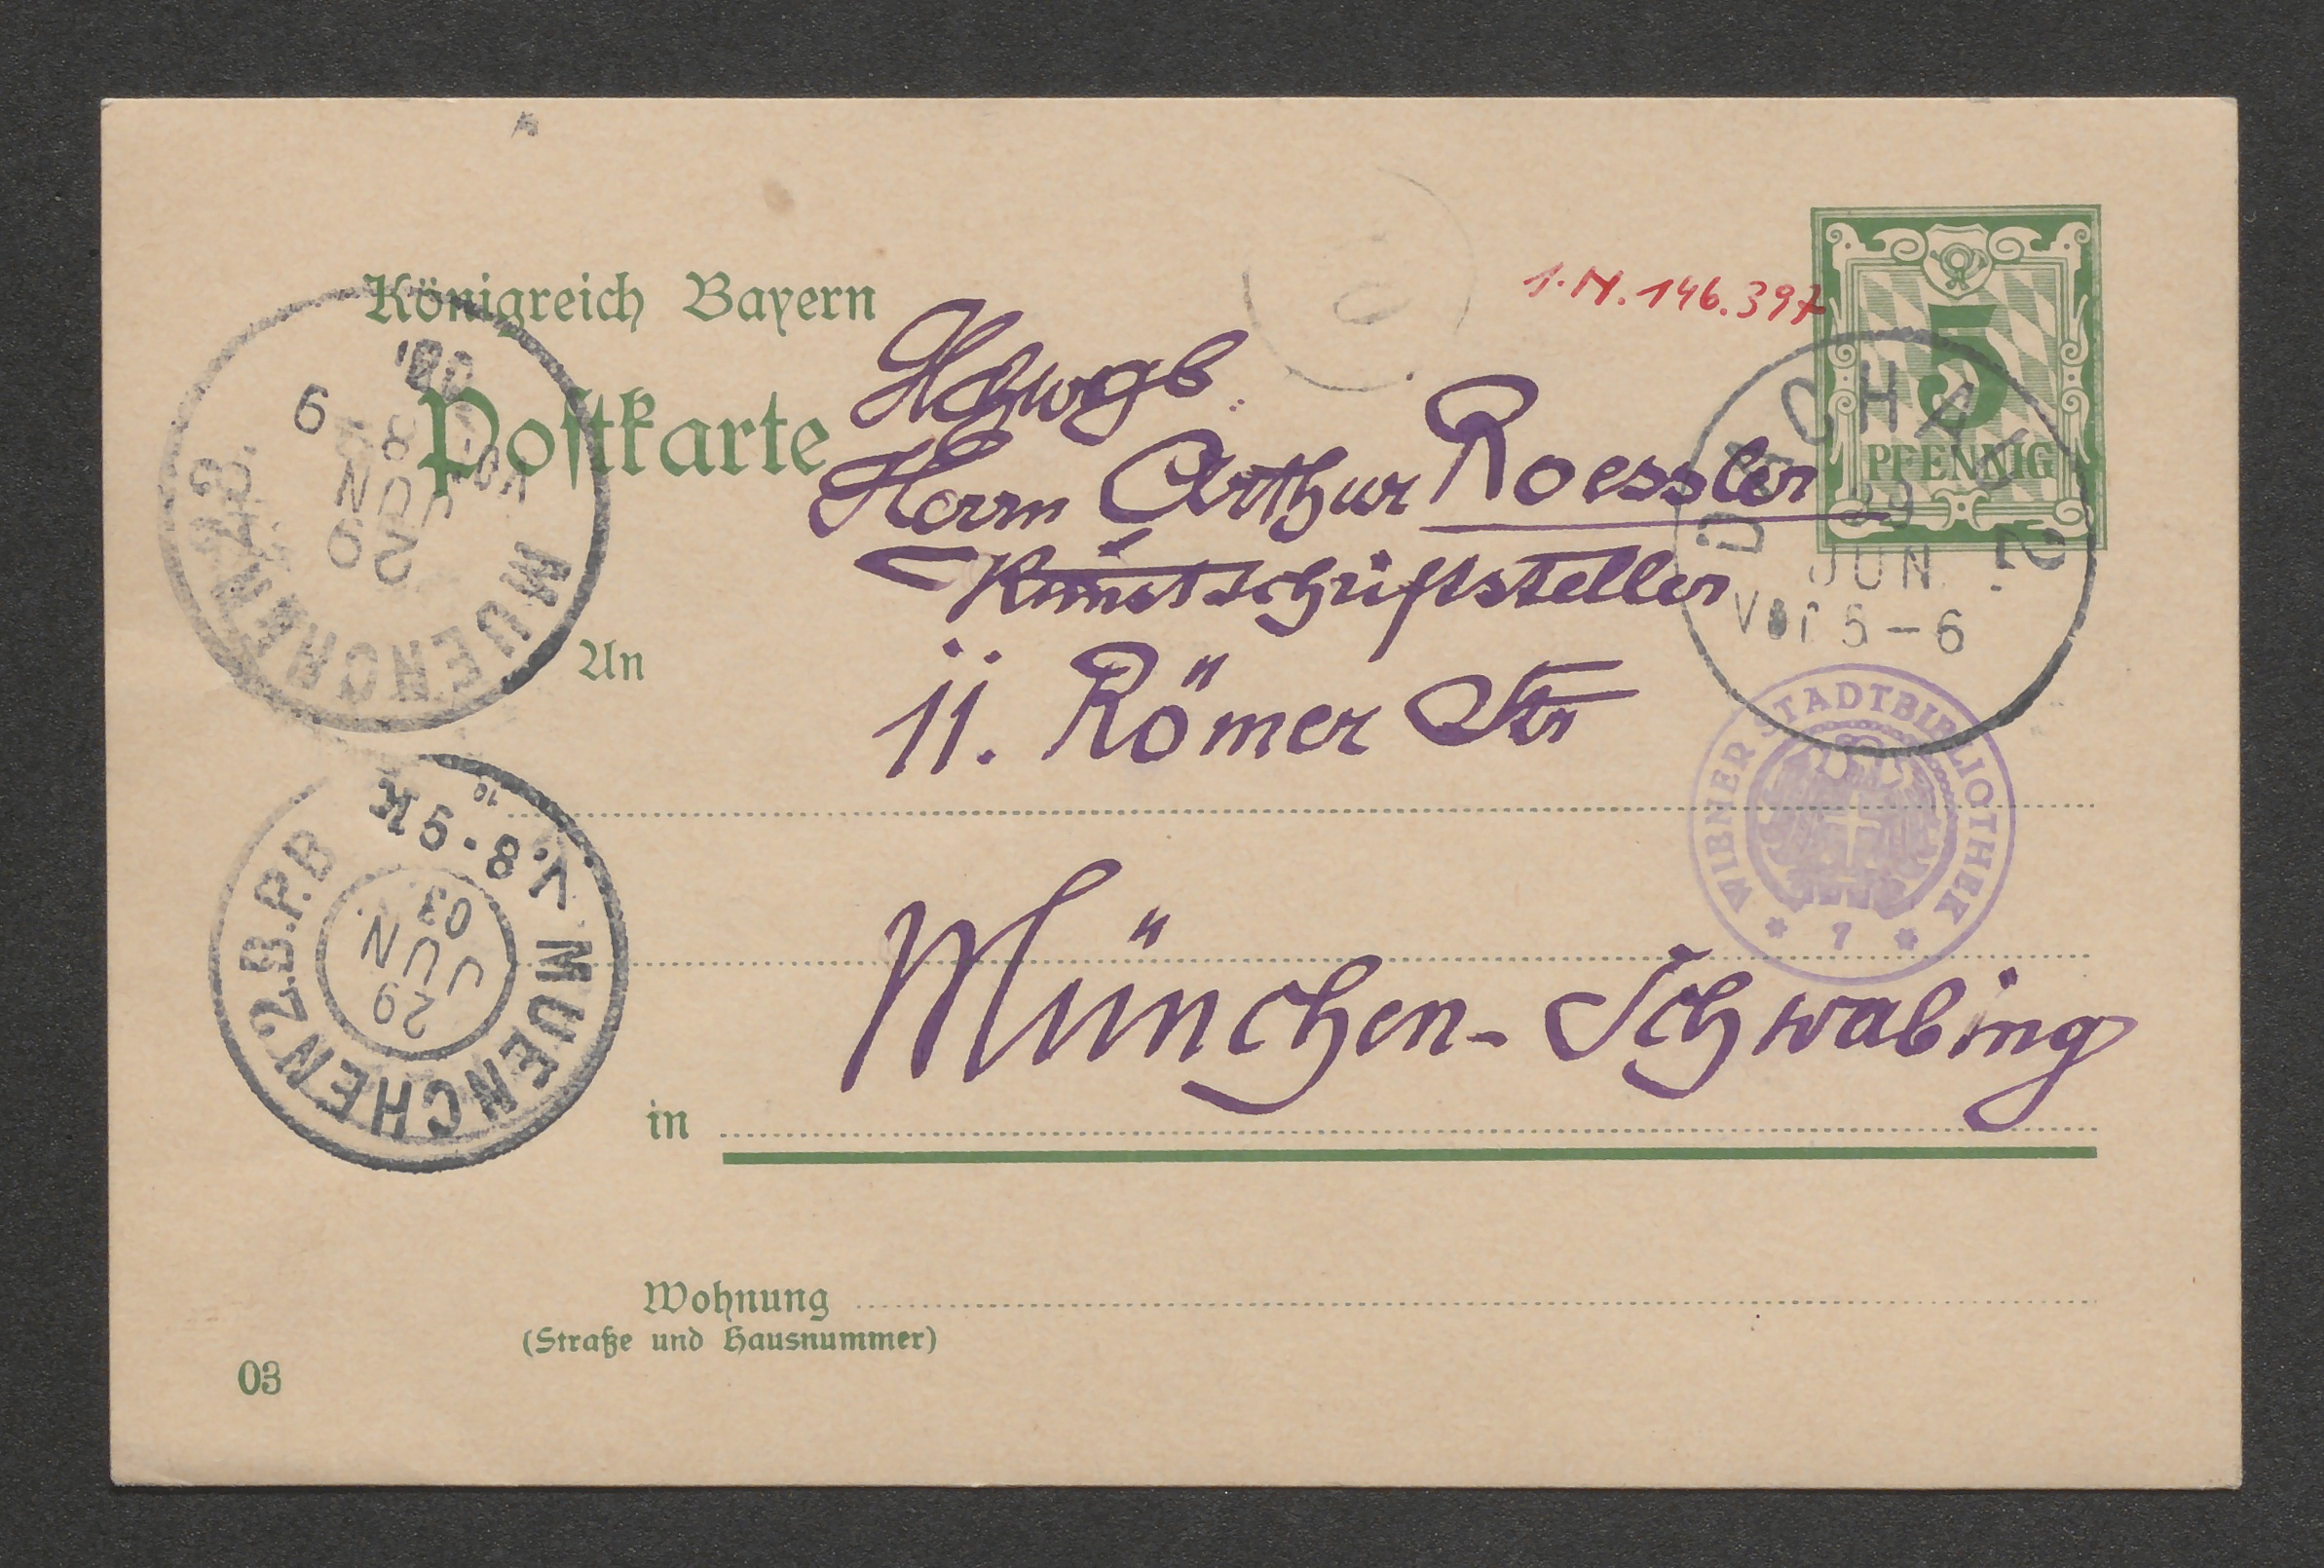 1.N.146.397
Königreich Bayern
Postkarte
5
PFENNIG
DACHAU 2.
29
JUN
Vor 5-6
Hchwgb.
Herrn Arthur Roessler
Kunstschriftsteller
An
11. Römer Str
MUENCHEN 23.
29
JUN
Vor. 8-9
WIENER STADTBIBLIOTHEK
* 7 *
MUENCHEN 2.B.P.B
V.8-9
29
JUN.
03
München-Schwabing
in
Wohnung
(Straße und Hausnummer)
03